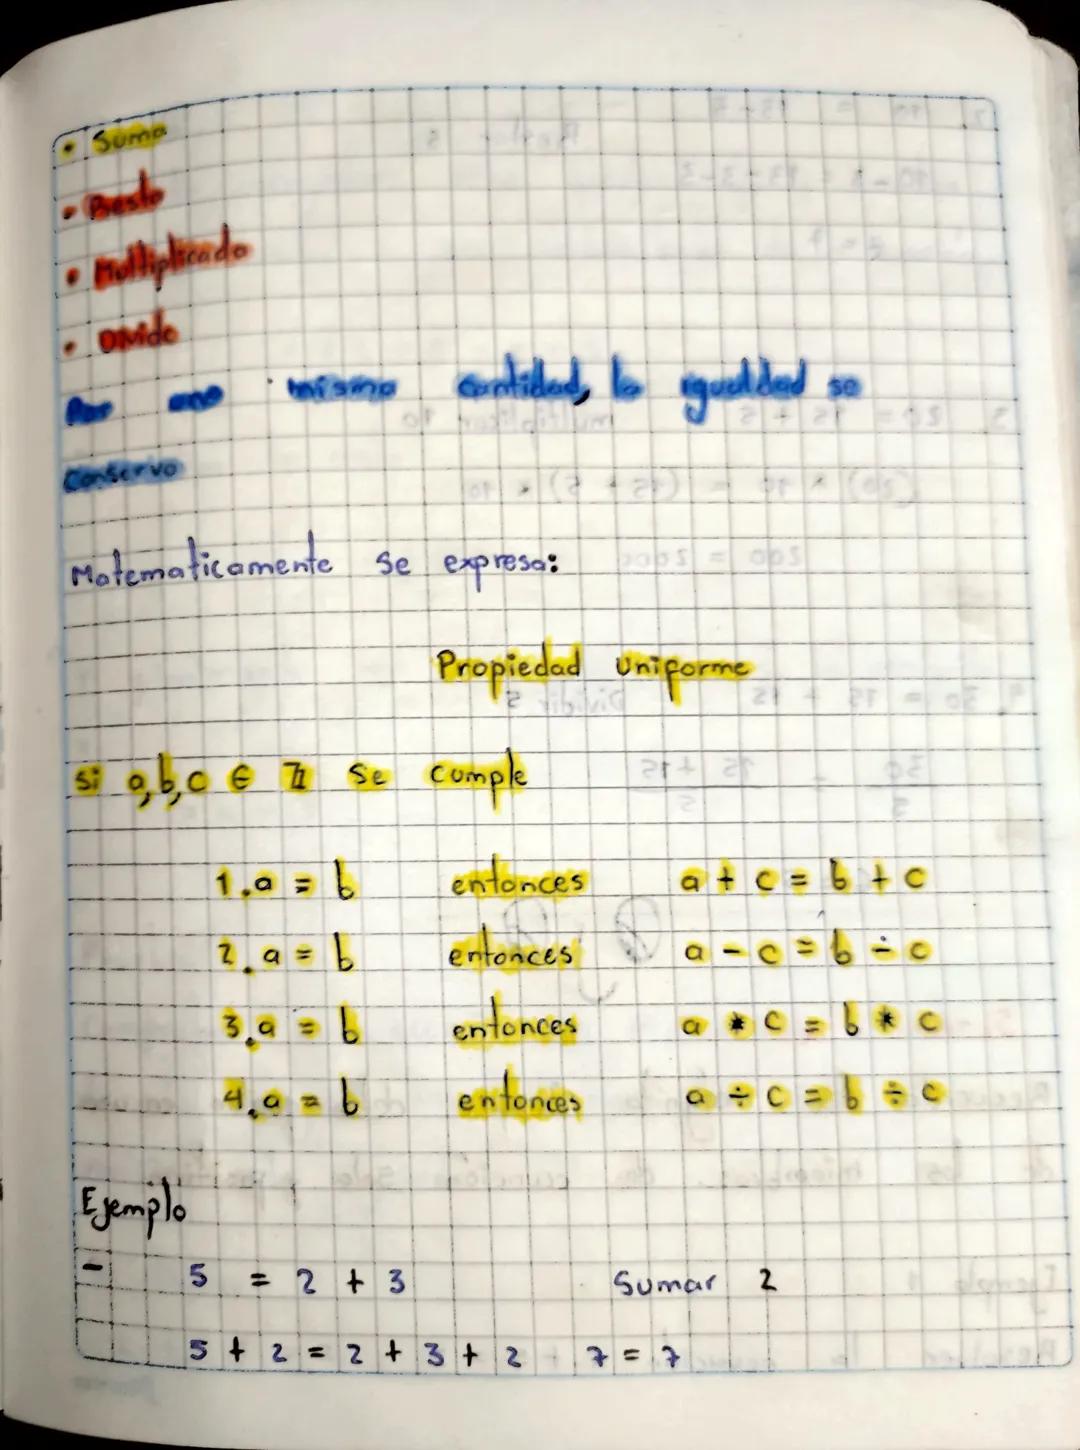 • Suma
• Resto
• Multiplicado
• Divido
Por una misma cantidad, la igualdad se
Conserva
Matematicamente se expresa:
Propiedad uniforme
si a,b,c ∈ ℤ se cumple
1. a = b entonces a + c = b + c
2. a = b entonces a - c = b ÷ c
3. a = b entonces a * c = b * c
4. a = b entonces a ÷ c = b ÷ c
Ejemplo
- 5 = 2 + 3 Sumar 2
5 + 2 = 2 + 3 + 2 7 = 7